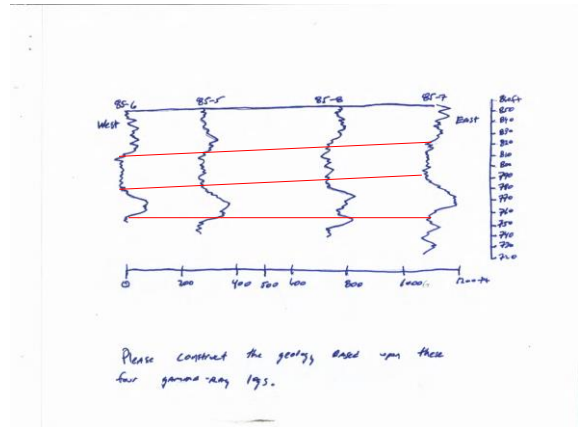 85-6 85-5 85-8 85-7
West East
850
840
830
820
810
800
790
780
770
760
750
740
730
720
0 200 400 500 600 800 1000 1200 ft
Please construct the geology based upon these
four gamma-ray logs.